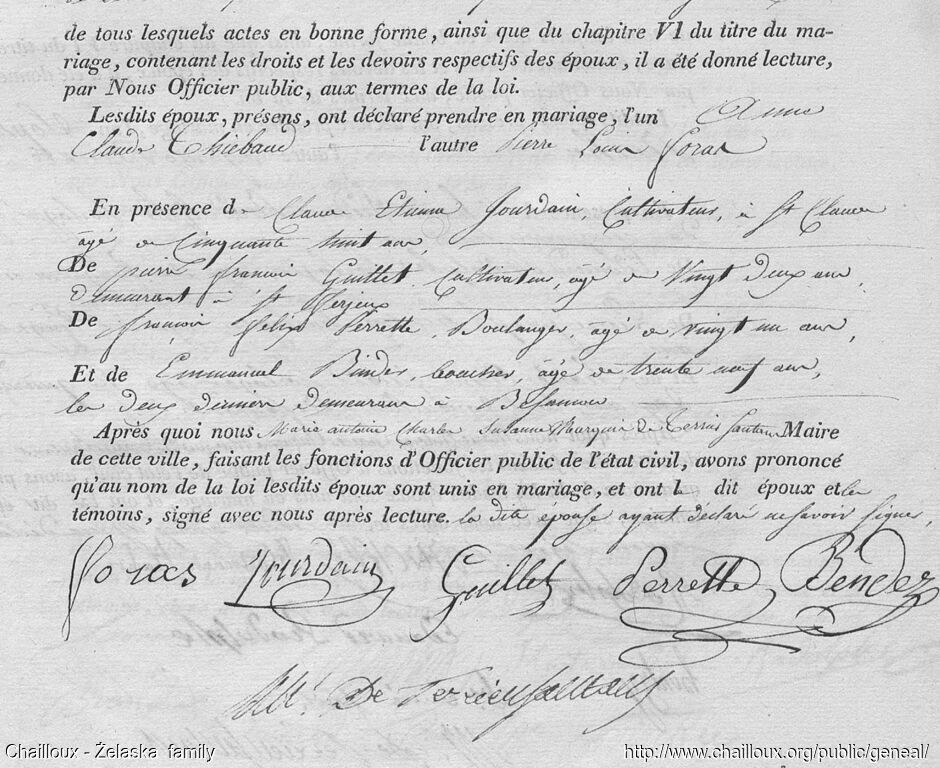 de tous lesquels actes en bonne forme, ainsi que du chapitre VI du titre du ma-
riage, contenant les droits et les devoirs respectifs des époux, il a été donné lecture,
par Nous Officier public, aux termes de la loi.
Lesdits époux, présens, ont déclaré prendre en mariage, l'un Anne
Claude Thiébaud l'autre Pierre Louis
En présence de Claude Etienne Jourdain, Cultivateur, à St Claude
âgé de Cinquante huit ans,
De pierre françois Guillet Cultivateur, âgé de Vingt deux ans
demeurant à St ferjeux
De françois felix Perrette, Boulanger, âgé de vingt un ans,
Et de Emmanuel Binder, boucher, âgé de trente neuf ans,
les deux derniers demeurans à Besançon
Après quoi nous Marie antoine Charles Suzanne Marquis de Terrier Santans Maire
de cette ville, faisant les fonctions d'Officier public de l'état civil, avons prononcé
qu'au nom de la loi lesdits époux sont unis en mariage, et ont l dit époux et les
témoins, signé avec nous après lecture. la dite épouse ayant déclaré ne savoir signer,
Jourdain Guillet Perrette Bender
De Terrier Santans
Chailloux - Želaska family http://www.chailloux.org/public/geneal/